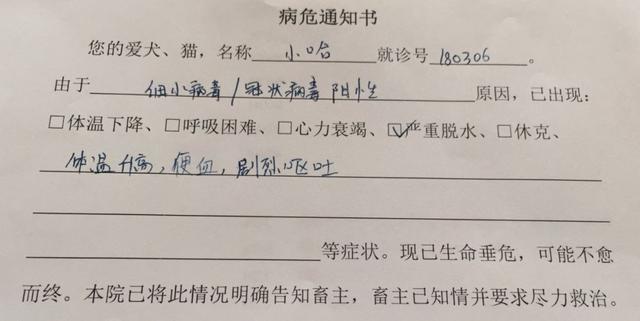 病危通知书
您的爱犬、猫,名称 小哈 就诊号 180306 。
由于 细小病毒/冠状病毒 阳性 原因,已出现:
□体温下降、□呼吸困难、□心力衰竭、☑重脱水、□休克、
体温升高,便血,剧烈呕吐
等症状。现已生命垂危,可能不愈
而终。本院已将此情况明确告知畜主,畜主已知情并要求尽力救治。